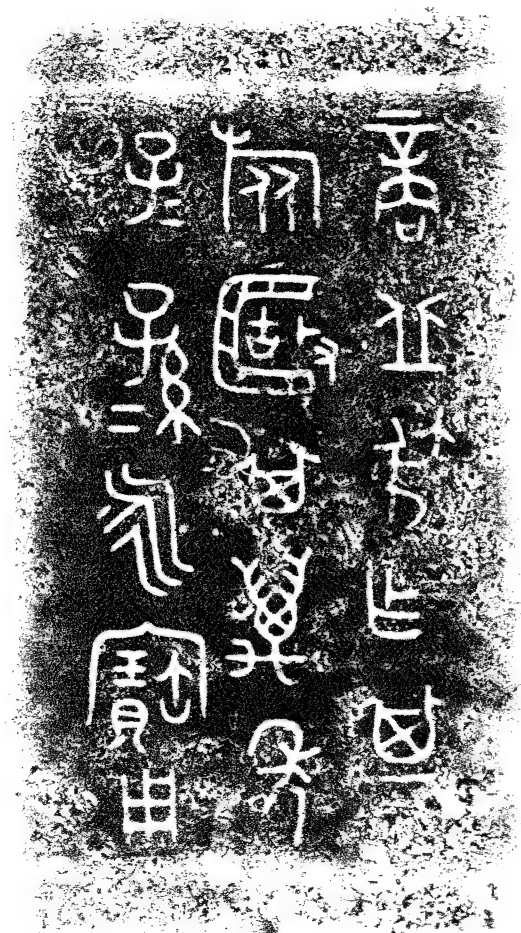 商丘叔乍其
旅簠其萬年
子=孫=永寶用